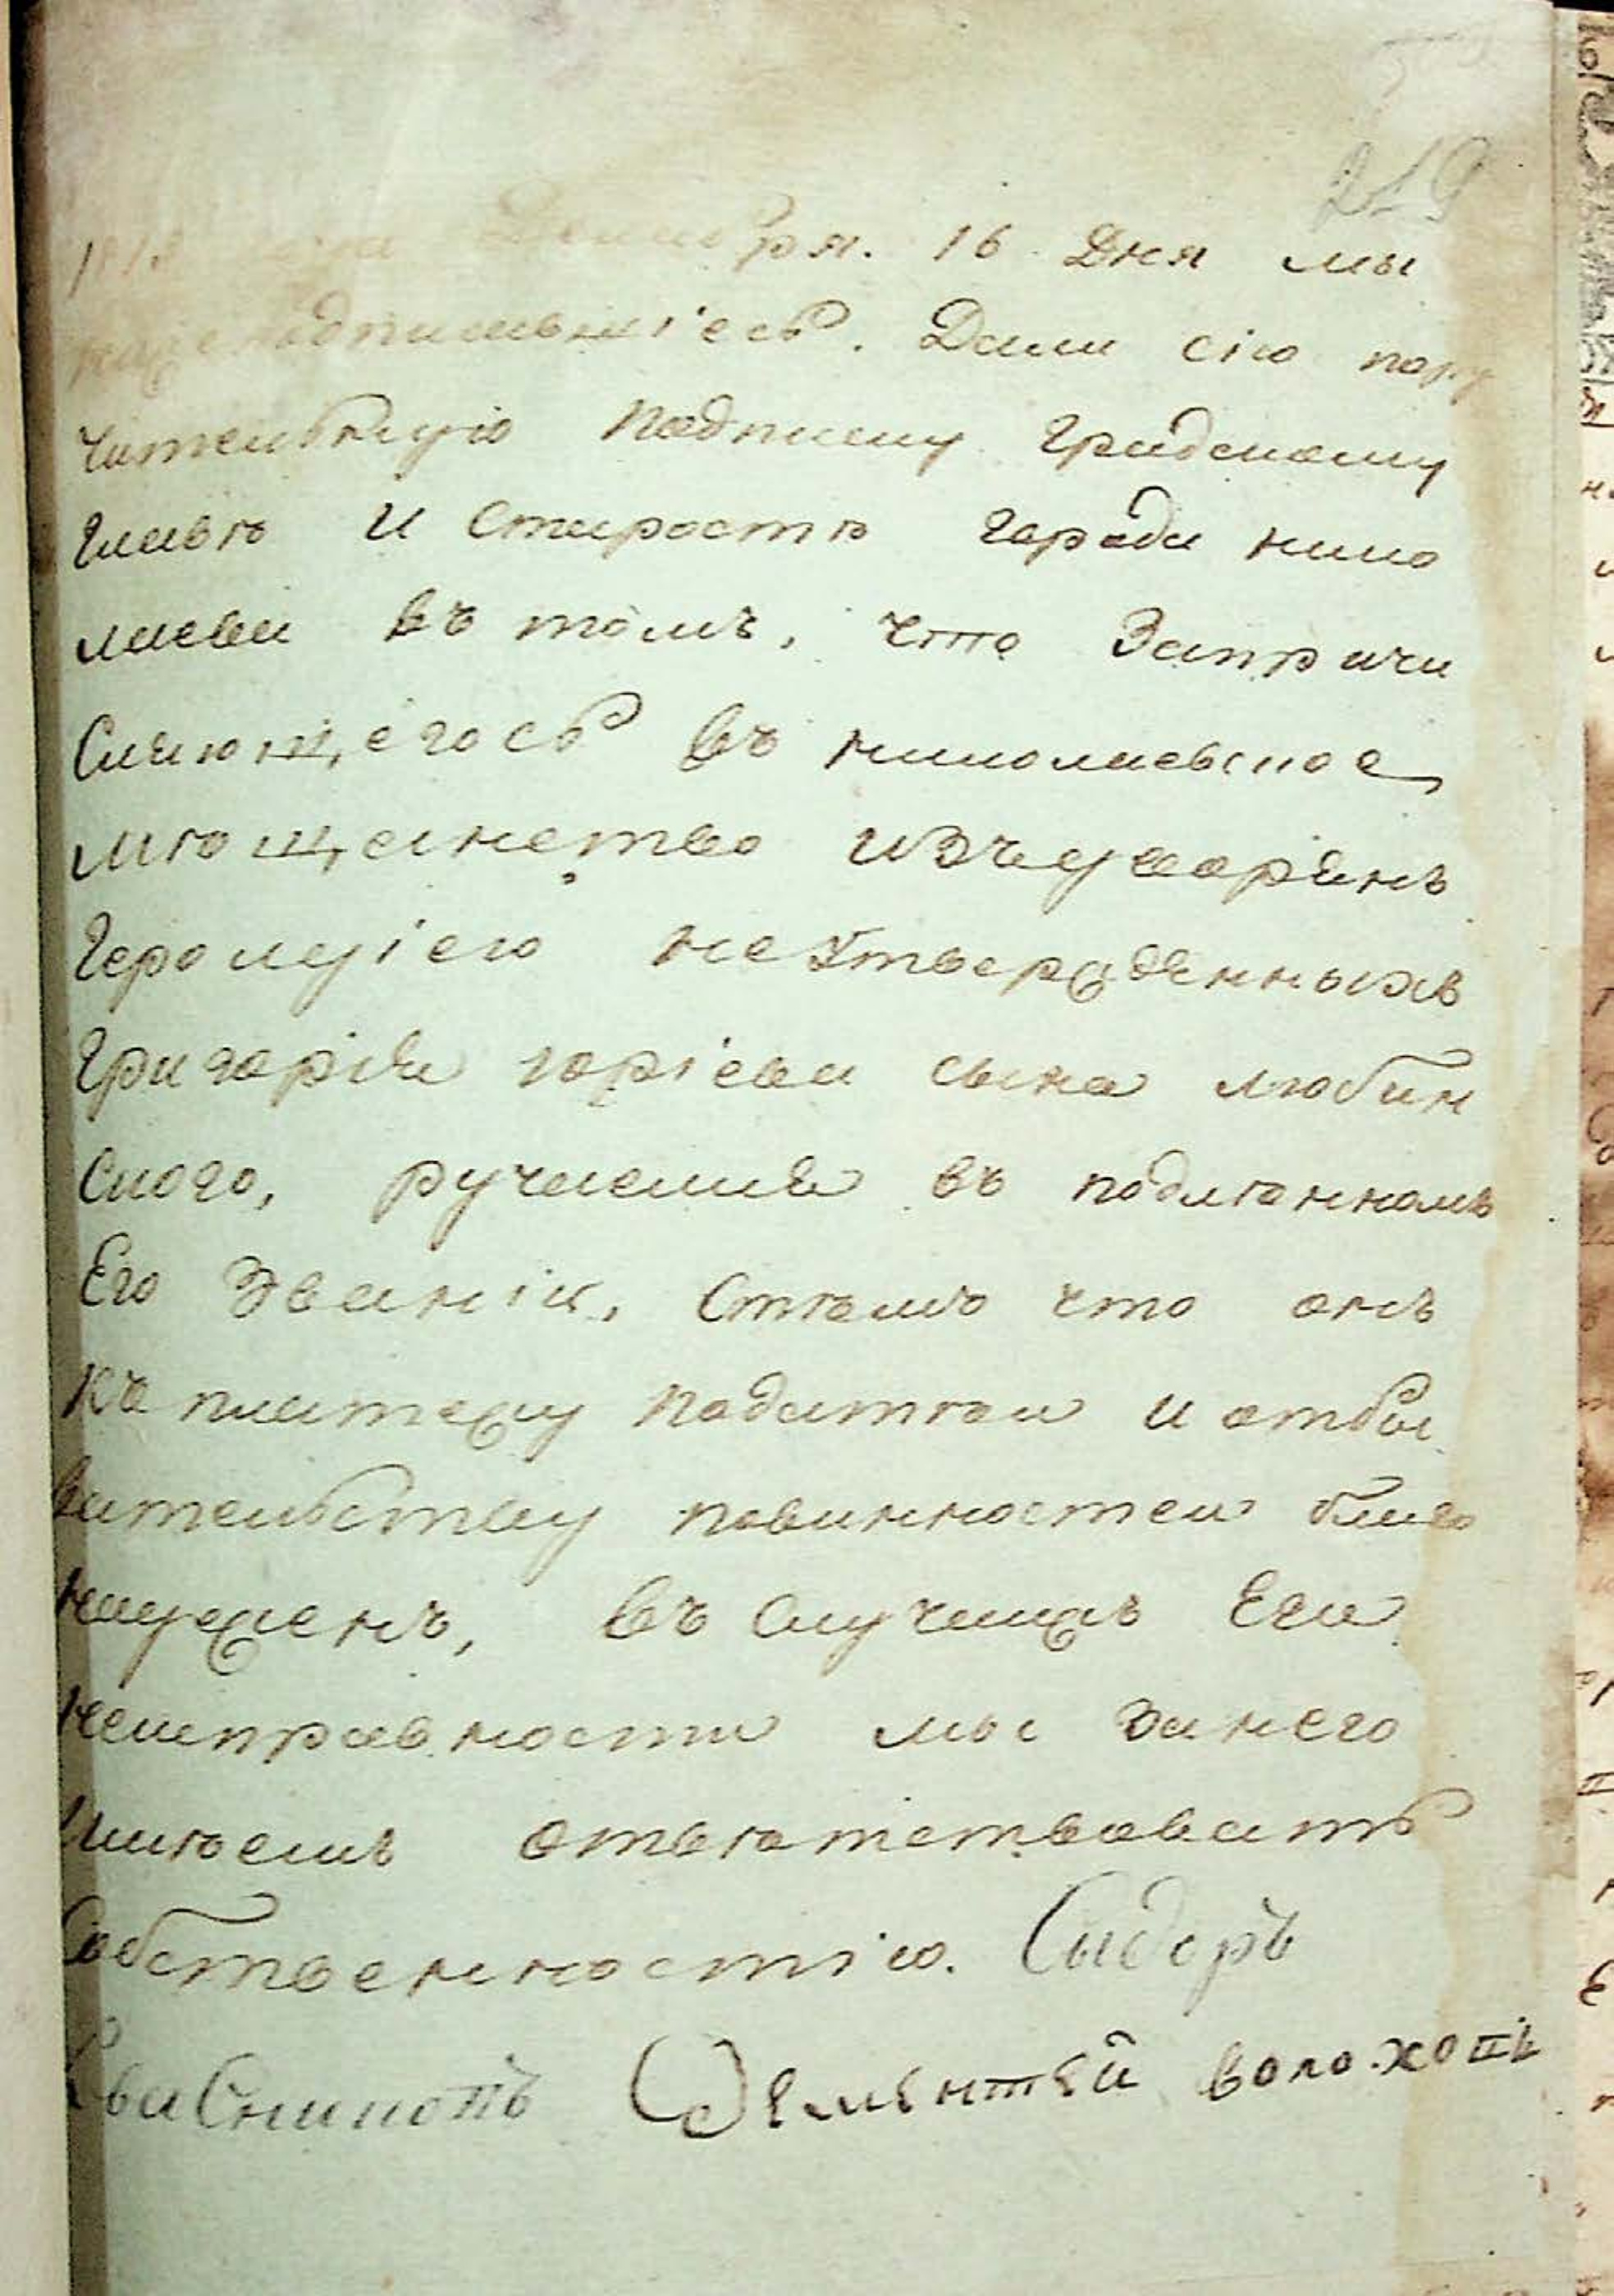 219
ря. 16 Дня мы
нижеподписавшіесь. Дали сію пору
чительную подписку градскому
главѣ и старостѣ города нико
лаева въ томъ, что Запричи
сляющегось въ николаевское
мѣщанство изъ дворянъ
Герольдіею неутвержденныхъ
григорія сына любин
ского, ручаемся въ подлѣнномъ
Его званіи, стѣмъ что онъ
къ платежу податѣй и отбы
вательству повинностей благо
надеженъ, въ случаяхъ Его
неисправности мы занего
имѣемъ ответствовать
Собственностію. Сыдоръ
Дементѣй волохопъ